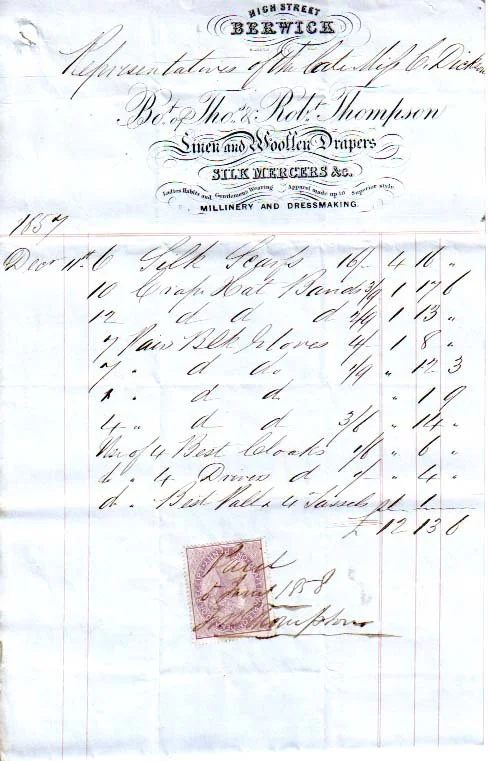 HIGH STREET
BERWICK
Representatives of the late Miss C. Dickson
Bot. of Thos. & Robt. Thompson
Linen and Woollen Drapers
SILK MERCERS &c.
Ladies Habits and Gentlemens Wearing Apparel made up in Superior style
MILLINERY AND DRESSMAKING.
1857
Decr 11th 6 Silk Scarfs 16/- 4 16 "
10 Crape Hat Bands 3/9 1 17 6
12 d d d 2/9 1 13 "
7 Pair Blk Gloves 4/- 1 8 "
7 " d do. 1/9 " 12 3
1 " d d " 1 9
4 " d d 3/6 " 14 "
Use of 4 Best Cloaks 1/6 " 6 "
do " 4 Drivers d 1/- " 4 "
do. Best Pall & 4 Tassels 1
£ 12 13 6
Paid
5 1858
Thompson